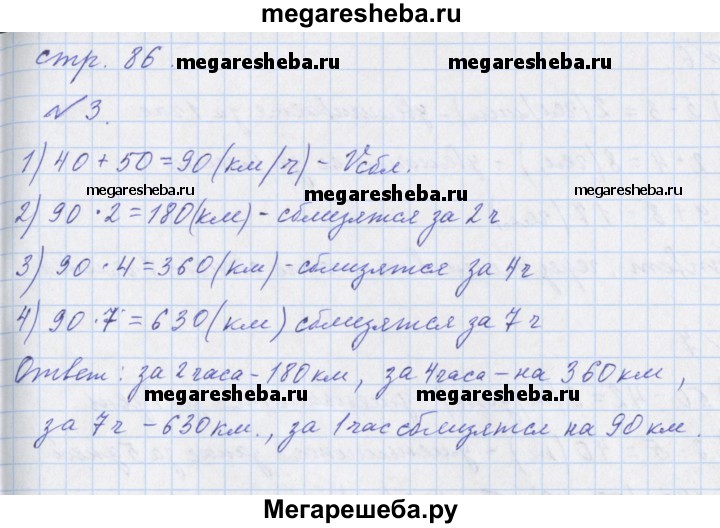 megaresheba.ru
стр. 86.
megaresheba.ru megaresheba.ru
№ 3.
1) 40 + 50 = 90 (км/ч) - Vсбл.
megaresheba.ru megaresheba.ru megaresheba.ru
2) 90 · 2 = 180 (км) - сблизятся за 2 ч
3) 90 · 4 = 360 (км) - сблизятся за 4 ч
4) 90 · 7 = 630 (км) сблизятся за 7 ч
Ответ: за 2 часа - 180 км, за 4 часа - на 360 км,
megaresheba.ru megaresheba.ru
за 7 ч - 630 км., за 1 час сблизятся на 90 км.
Мегарешеба.ру